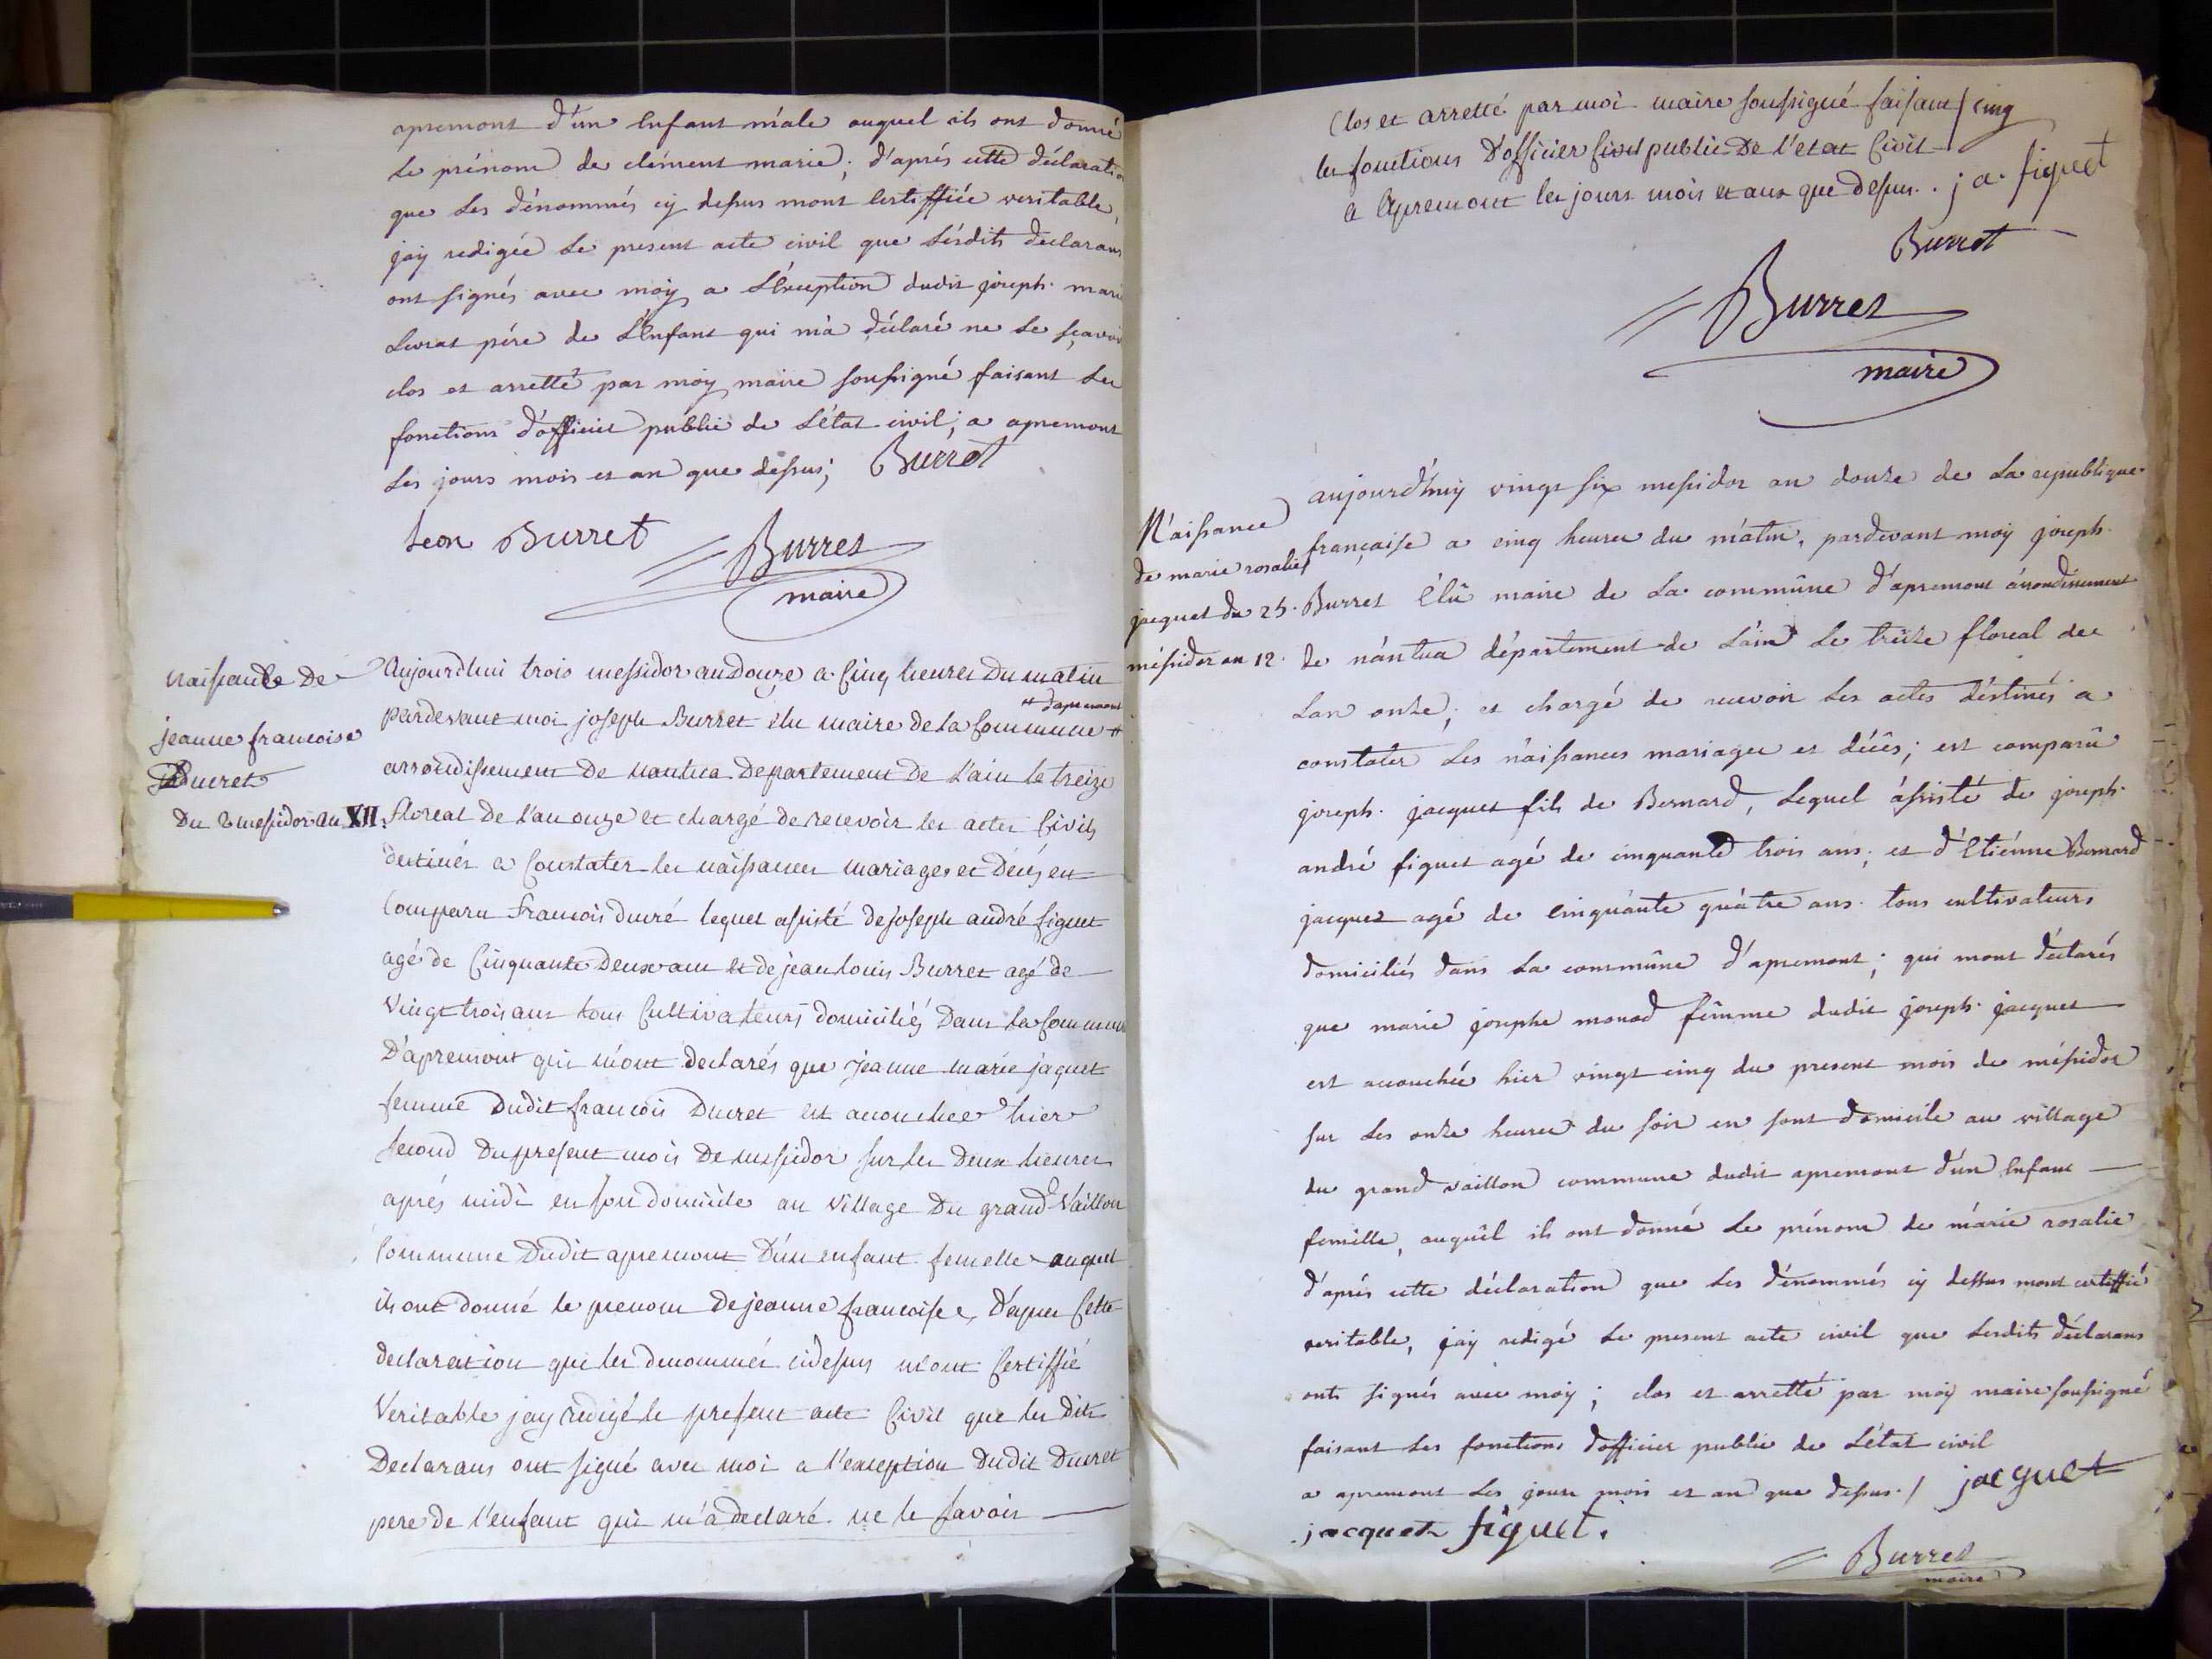 apremont d'un Enfant mâle auquel ils ont donné
le prénom de clément marie; d'aprés cette déclaratio
que les dénommés cy dessus mont certiffiée veritable,
jay redigée le present acte civil que lésdits declarans
ont signés avec moÿ a l'éxception dudit joseph marie
pére de l'Enfant qui m'a déclaré ne le sçavoir
clos et arretté par moÿ maire soussigné faisant les
fonctions d'officier public de l'état civil; a apremont
les jours mois et an que dessus; Burret
Leon Burret
Burret
maire
Naissance De
jeanne francoise
Ducret
Du 2 messidor an XII.
Aujourdhui trois messidor an Douze a Cinq heures Du matin
pardevant moi joseph Burret elu maire de la Commune #
# dapremont
arrondissement De nantua Departement De l'ain le treize
floreal De l'an onze et chargé de recevoir les actes Civils
destinés a Constater les naissances mariages et Décés est
Comparu francois ducré lequel assisté de joseph andré figuet
agé de Cinquante Deux ans et de jean louis Burret agé de
Vingt trois ans tous Cultivateurs domiciliés Dans la Commune
D'apremont qui m'ont declarés que jeanne marie jaquet
femme Dudit francois Ducret est accouchee hier
second Du present mois De messidor sur les Deux heures
aprés midi en son domicile au village Du grand Vaillon
Commune Dudit apremont D'un enfant femelle auquel
ils ont donné le prenom De jeanne francoise, D'apres Cette
declaration que les denommés cidessus m'ont Certiffié
Veritable jay redigé le present acte Civil que les dits
Declarans ont signé avec moi a l'exception Dudit Ducret
pere de l'enfant qui m'a declaré ne le savoir
Clos et arretté par moi maire soussigné faisant / cinq
les fonctions D'officier Civil public De l'etat Civil
a Apremont les jours mois et ans que dessus . j a figuet
Burret
Burret
maire
Naissance
de marie rosalie
jacquet du 25
méssidor an 12.
aujourd'huÿ vingt six messidor an douze de la republique
française a cinq heures du mâtin, pardevant moÿ joseph
Burret Élû maire de la commûne d'apremont árrondissement
de nántua département de l'áin le treize floreal de
lan onze; et chargé de recevoir les actes déstinés a
constater les náissances mariages et décés; est comparû
joseph jacquet fils de Bernard, lequel ássisté de joseph
andré figuet agé de cinquante trois ans; et d'Etiénne Bernard
jacquet agé de cinquánte quátre ans tous cultivateurs
domiciliés dans la commûne d'apremont; qui mont déclarés
que marie josephe monod fémme dudit joseph jacquet
est accouchée hier vingt cinq du present mois de méssidor
sur les onze heures du soir en sont domicile au village
du grand vaillon commune dudit apremont d'un Enfant
femelle, auquêl ils ont donné le prénom de márie rosalie
d'aprés cette déclaration que les dénommés cy dessus mont certiffié
veritable, jaÿ redigé le present acte civil que lesdits déclarans
onts signés avec moÿ; clos et arretté par moÿ maire soussigné
faisant les fonctions d'officier public de l'état civil
a apremont les jours mois et an que dessus. / jacquet
jacquet figuet.
Burret
maire